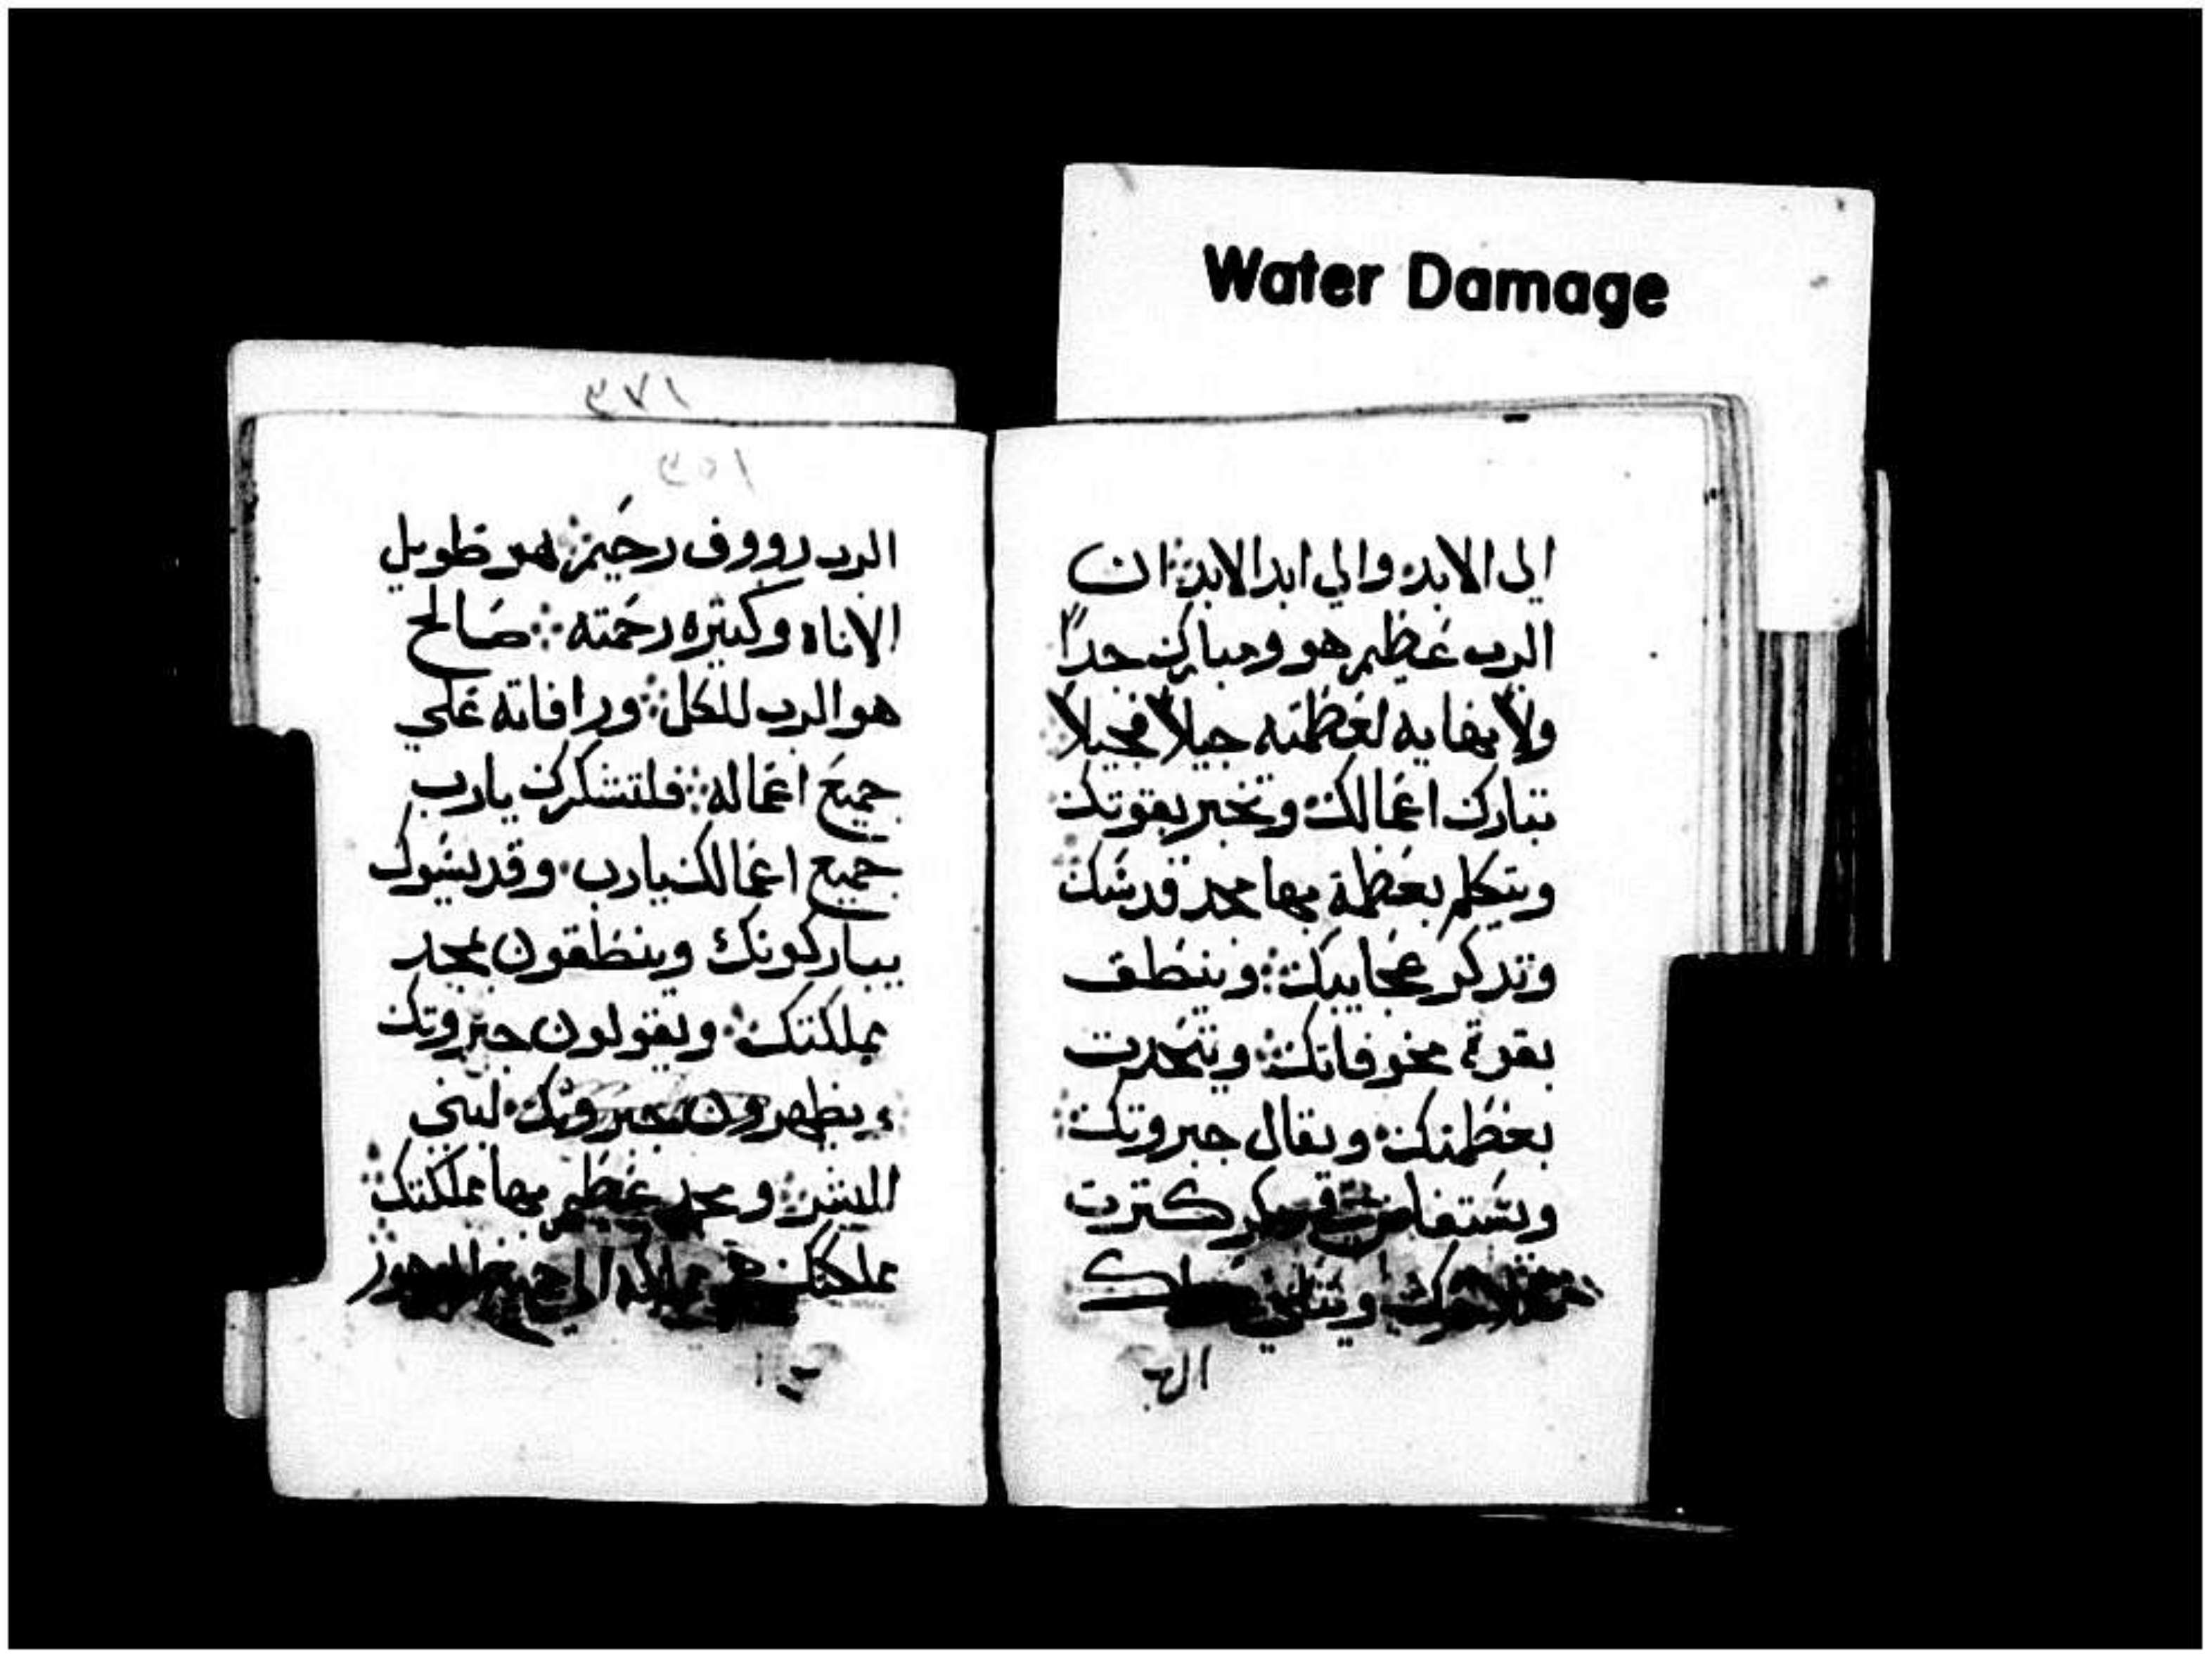 Water Damage
الي الابد والي ابد الابد ان
الرب عظيم هو ومبارك جداً
ولا نهايه لعظمته جيلاً فجيلاً
تبارك اعمالك وتخبر بقوتك
ويتكلم بعظمة بها مجد قدسك
وتذكر عجايبك وينطق
بقوة مخوفاتك ويتحدث
بعظمتك ويقال جبروتك
ويستفاض كثرت
الرب
٣٧١
٣٥١
الرب رووف رحيم هو طويل
الاناه وكثيره رحمته صالح
هو الرب للكل ورافاته علي
جميع اعماله فلتشكرك يارب
جميع اعمالك يارب وقديسوك
يباركونك وينطقون بمجد
مملكتك ويقولون جبروتك
ويظهرون جبروتك لبني
البشر ومجد عظيم بها مملكتك
مملكتك الي